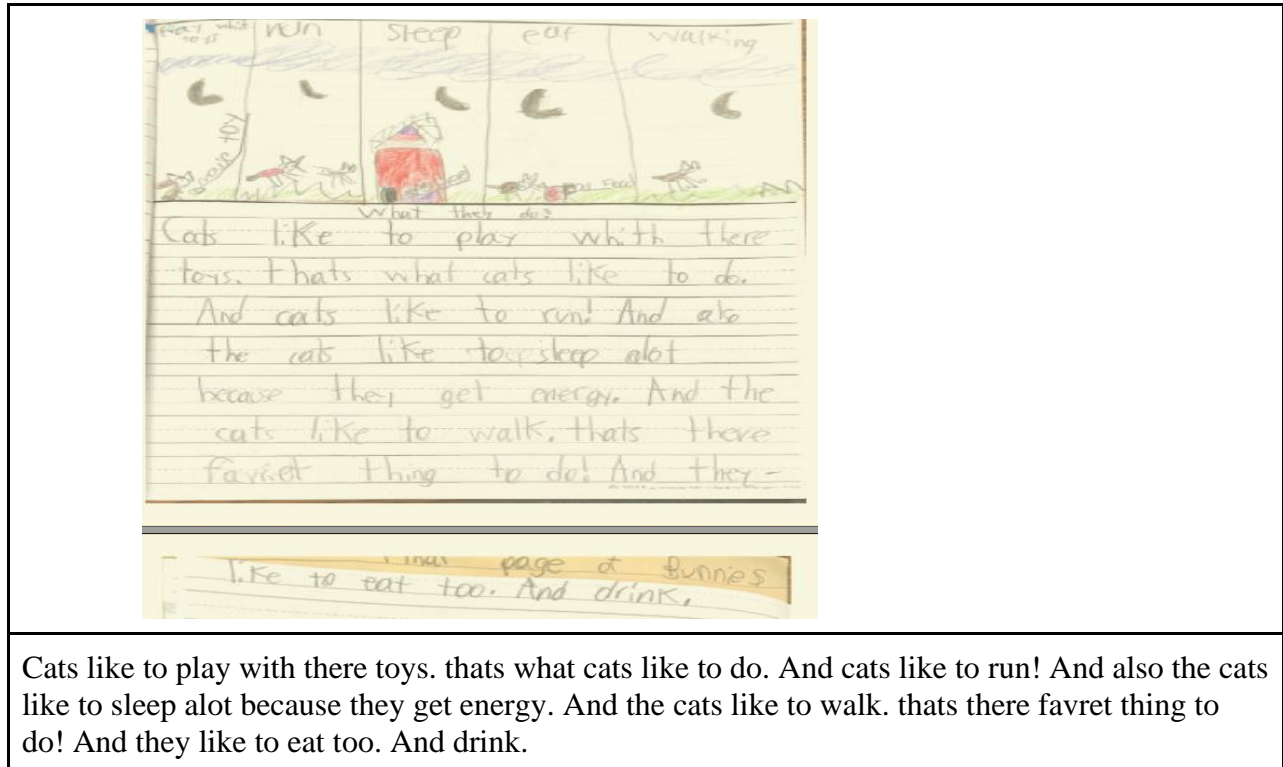 play whit toys
run
sleep
eat
walking
mouse toy
What they do?
Cats like to play whith there
toys. thats what cats like to do.
And cats like to run! And also
the cats like to sleep alot
because they get energy. And the
cats like to walk. thats there
favret thing to do! And they-
page of Bunnies
like to eat too. And drink.
Cats like to play with there toys. thats what cats like to do. And cats like to run! And also the cats
like to sleep alot because they get energy. And the cats like to walk. thats there favret thing to
do! And they like to eat too. And drink.